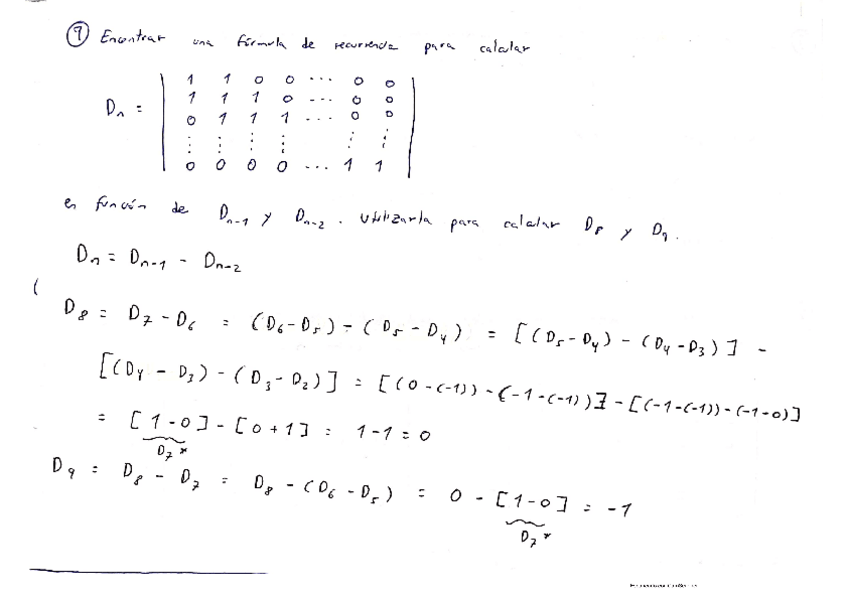 ⑨ Encontrar una fórmula de recurrencia para calcular
Dn = | 1 1 0 0 ... 0 0 |
| 1 1 1 0 ... 0 0 |
| 0 1 1 1 ... 0 0 |
| ⋮ ⋮ ⋮ ⋮ ⋮ ⋮ |
| 0 0 0 0 ... 1 1 |
en función de Dn-1 y Dn-2. Utilizarla para calcular D8 y D9.
Dn = Dn-1 - Dn-2
D8 = D7 - D6 = (D6 - D5) - (D5 - D4) = [(D5 - D4) - (D4 - D3)] -
[(D4 - D3) - (D3 - D2)] = [(0 - (-1)) - (-1 - (-1))] - [(-1 - (-1)) - (-1 - 0)]
= [1 - 0] - [0 + 1] = 1 - 1 = 0
D7*
D9 = D8 - D7 = D8 - (D6 - D5) = 0 - [1 - 0] = -1
D7*